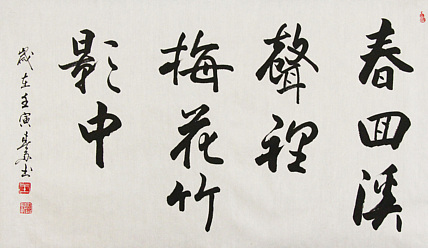 春回溪
聲裡
梅花竹
影中
歲在壬寅